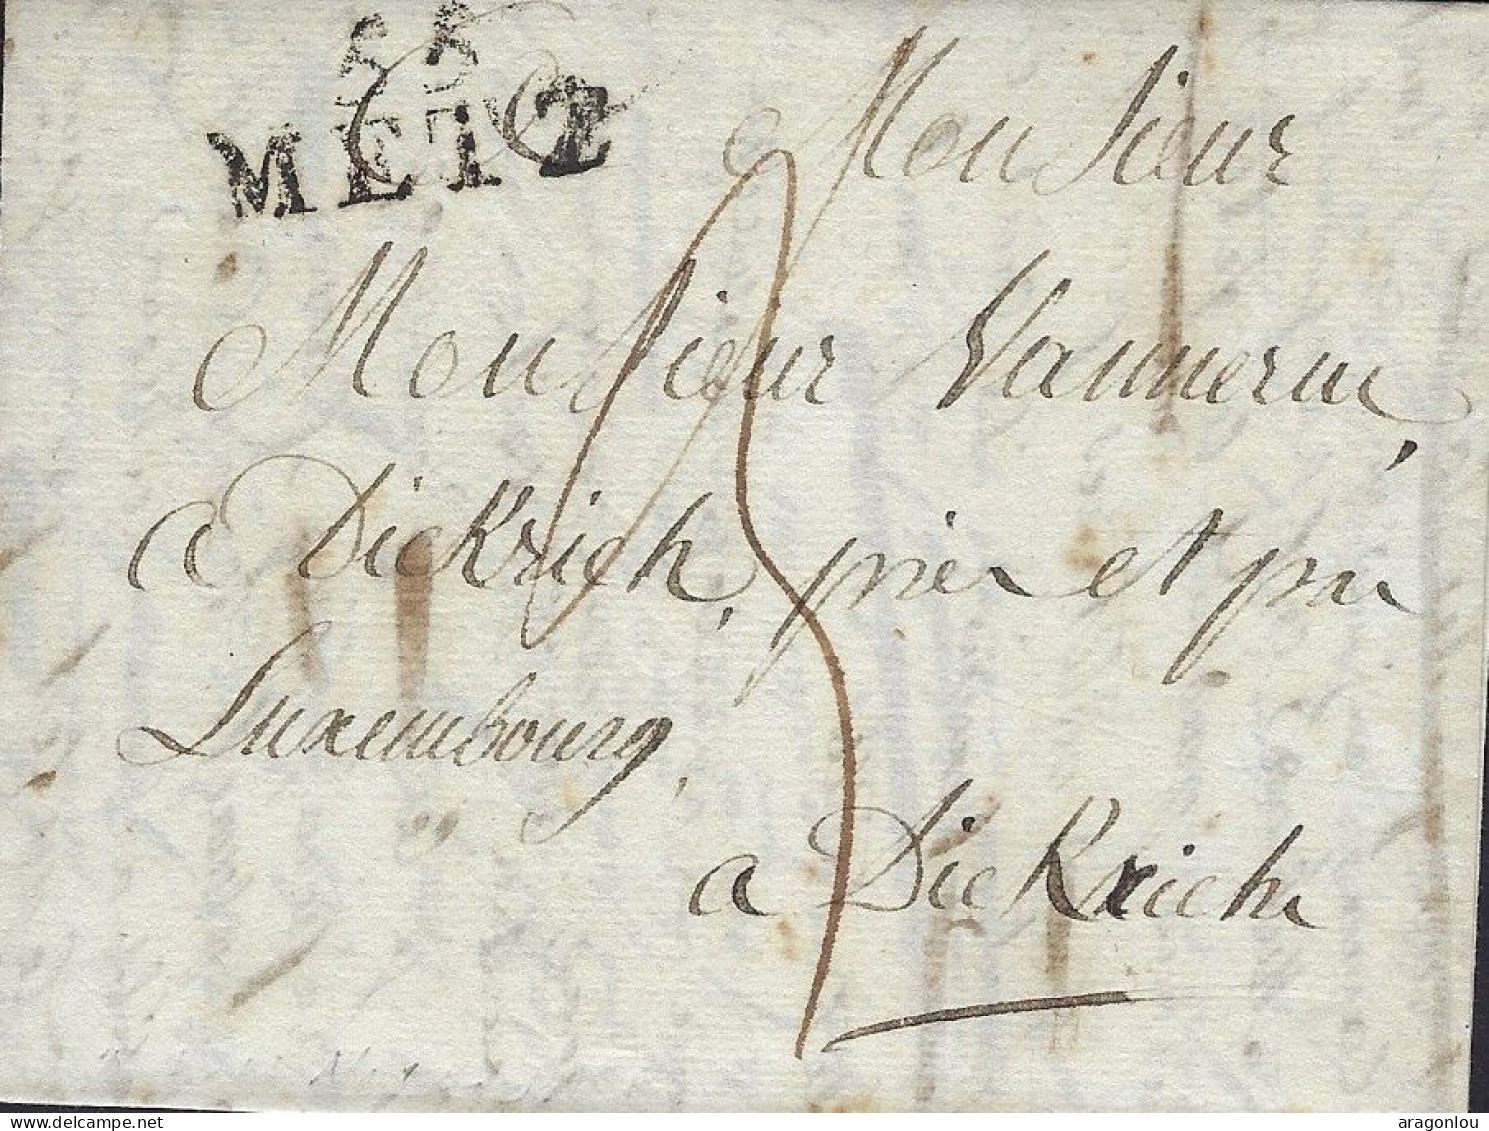 55
METZ
Monsieur
Monsieur Vannerus,
a Dickrich, près et par
Luxembourg,
a Dickrich
aragonlou